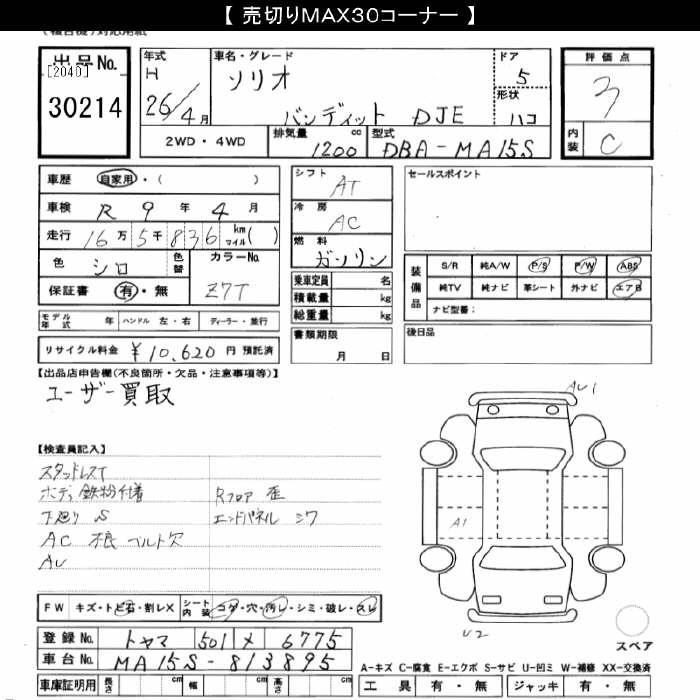 【 売切りMAX30コーナー 】
出品No.
[2040]
30214
年式
H
26/4月
車名・グレード
ソリオ
バンディット DJE
ドア
5
形状
ハコ
評価点
3
内装
C
2WD・4WD
排気量
1200 cc
型式
DBA-MA15S
車歴 自家用・( )
車検 R 9 年 4 月
走行 16万5千836 km マイル( )
色 シロ 色替 カラーNo.
Z7T
保証書 有・無
モデル年式 年 ハンドル 左・右 ディーラー・並行
リサイクル料金 ¥10,620 円 預託済
シフト
AT
冷房
AC
燃料
ガソリン
乗車定員 名
積載量 kg
総重量 kg
書類期限
月 日
セールスポイント
装備品
S/R 純A/W P/S P/W ABS
純TV 純ナビ 革シート 外ナビ エアB
ナビ型番:
後日品
【出品店申告欄(不良箇所・欠品・注意事項等)】
ユーザー買取
【検査員記入】
スタッドレスT
ボディ鉄粉付着
下廻り S
AC 根 ベルト欠
AU
Rフロア 歪
エンドパネル シワ
AU1
A1
U2
スペア
FW キズ・トビ石・割レX シート内装 コゲ・穴・汚レ・シミ・破レ・スレ
登録No. トヤマ 501 メ 6775
車台No. MA15S-813895
車庫証明用 長さ cm 幅 cm 高さ cm
A-キズ C-腐食 E-エクボ S-サビ U-凹ミ W-補修 XX-交換済
工具 有・無 ジャッキ 有・無